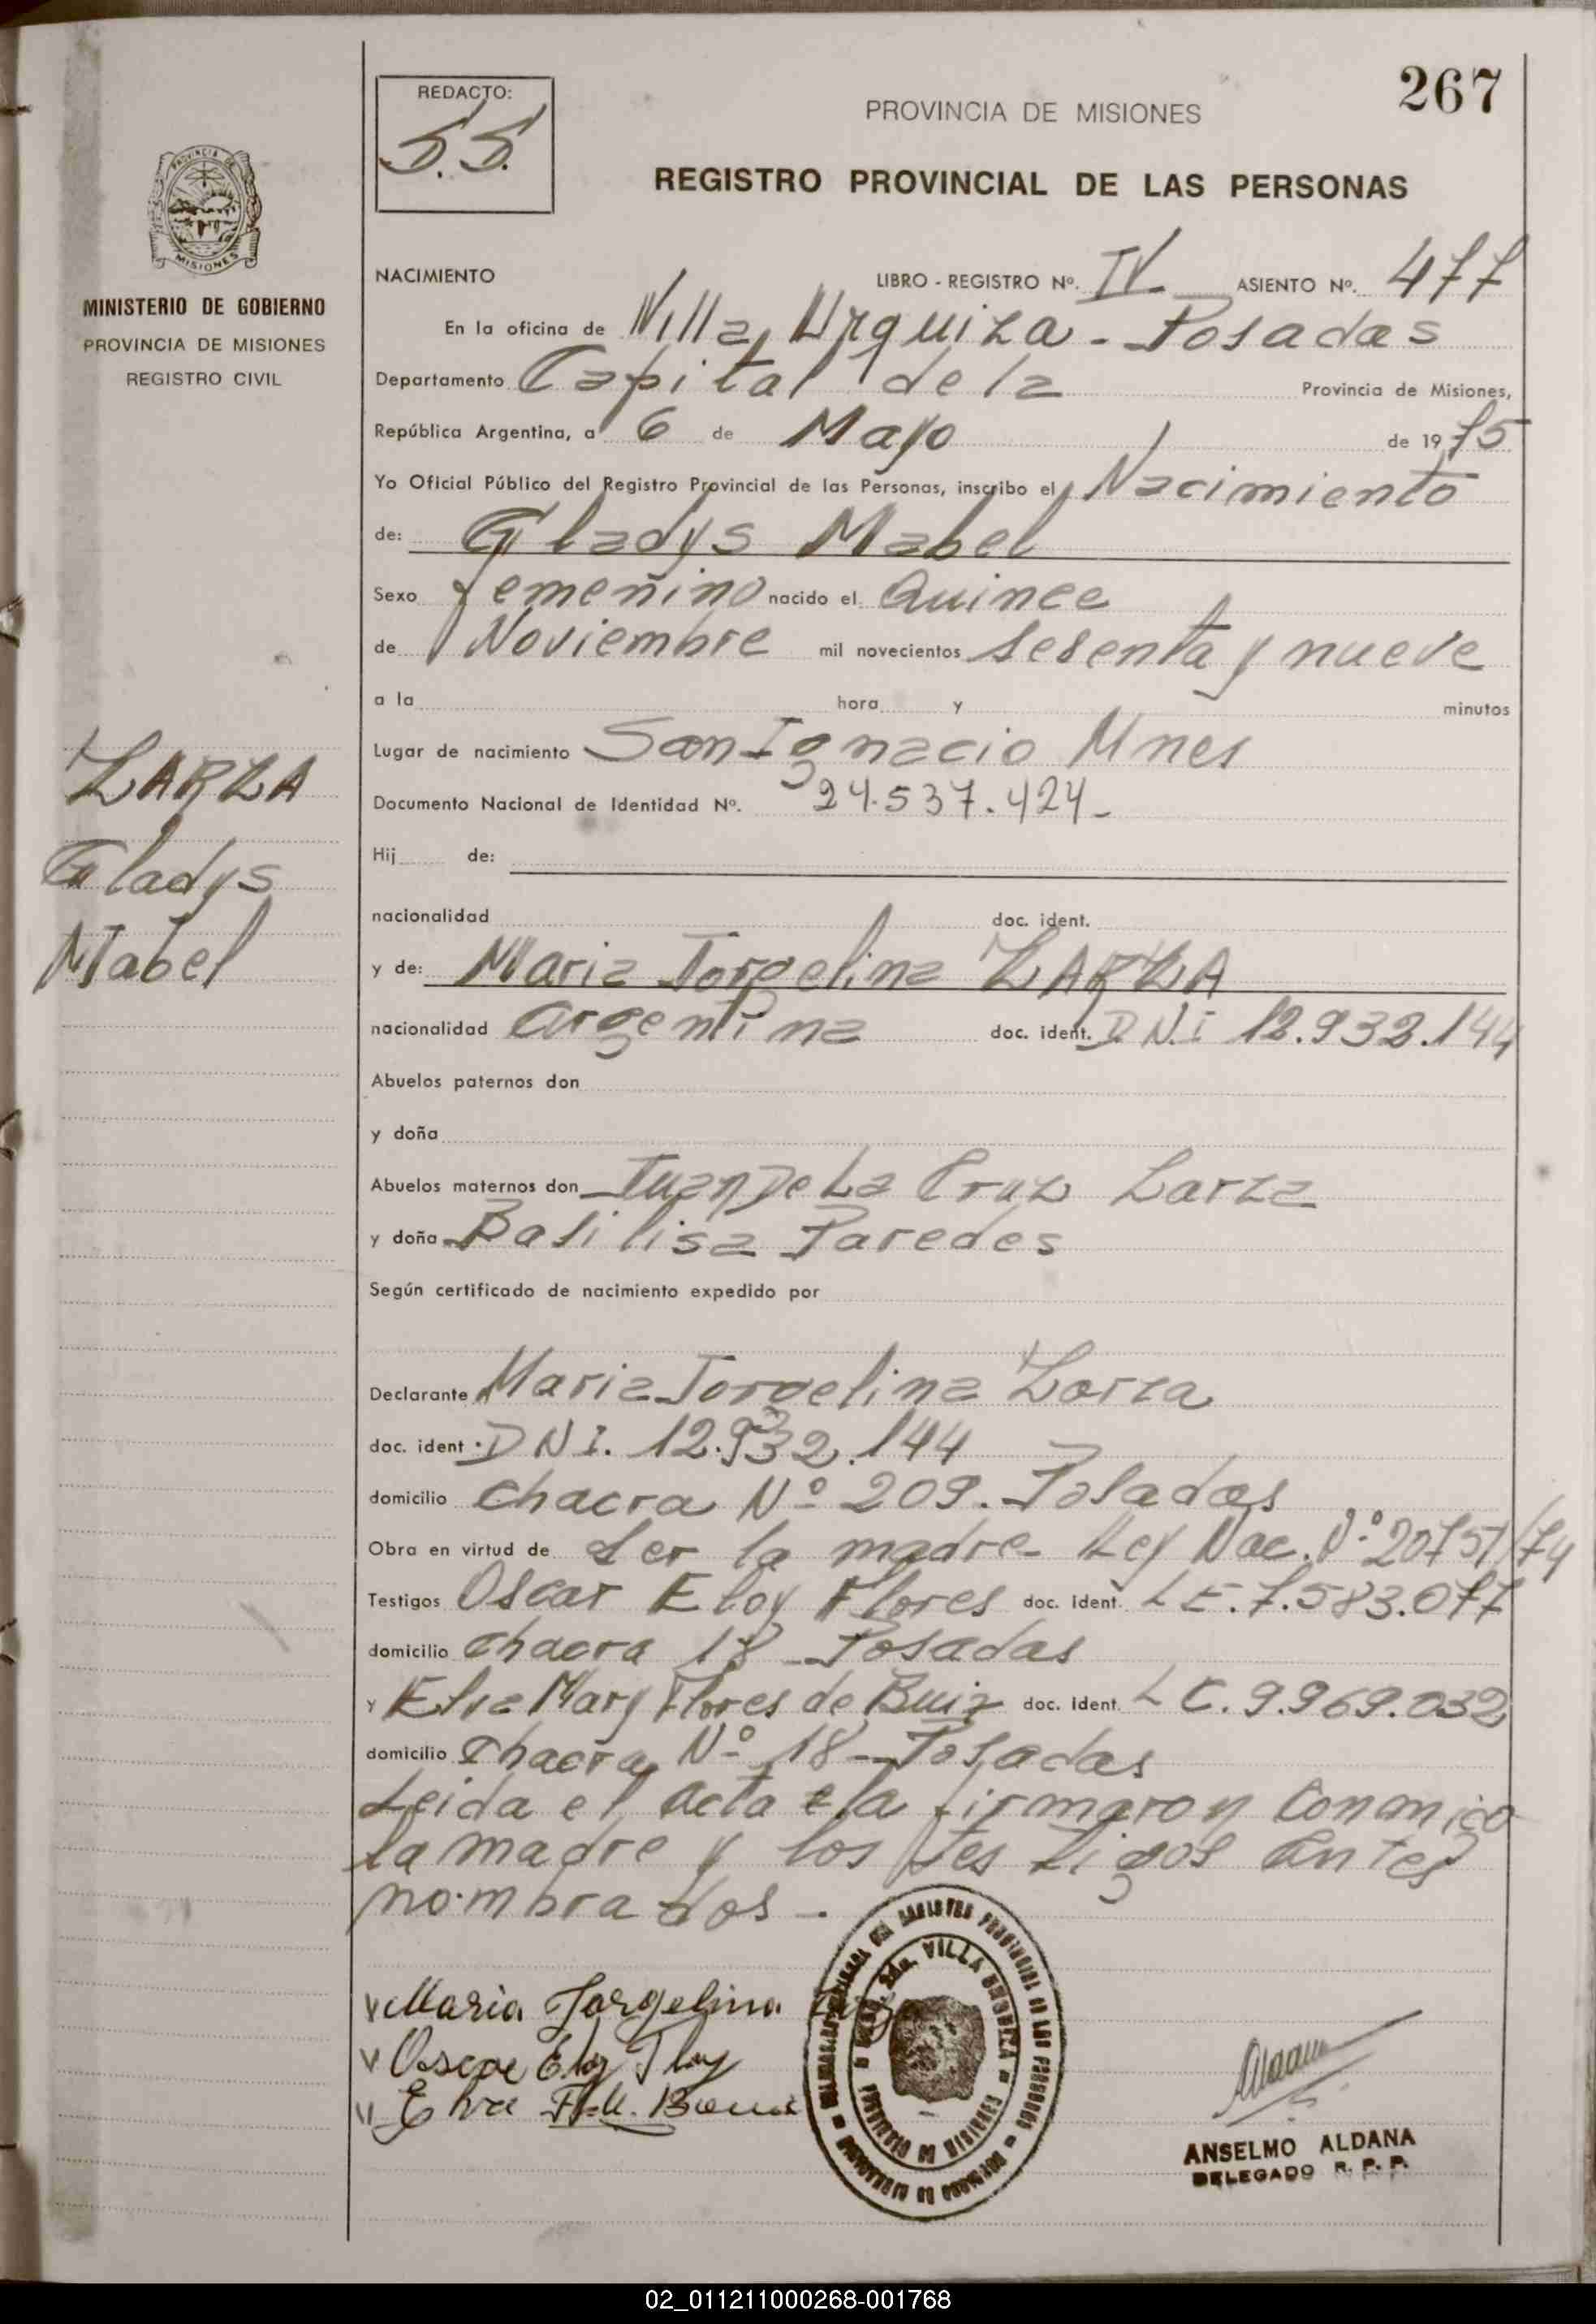 267
REDACTO:
S.S.
PROVINCIA DE MISIONES
REGISTRO PROVINCIAL DE LAS PERSONAS
PROVINCIA DE
MISIONES
MINISTERIO DE GOBIERNO
PROVINCIA DE MISIONES
REGISTRO CIVIL
NACIMIENTO LIBRO - REGISTRO Nº. IV ASIENTO Nº. 477
En la oficina de Villa Urquiza - Posadas
Departamento Capital de la Provincia de Misiones,
República Argentina, a 6 de Mayo de 1975
Yo Oficial Público del Registro Provincial de las Personas, inscribo el Nacimiento
de: Gladys Mabel
Sexo femenino nacido el Quince
de Noviembre mil novecientos sesenta y nueve
a la hora y minutos
Lugar de nacimiento San Ignacio Mnes
Documento Nacional de Identidad Nº. 24.537.424-
ZARZA
Gladys
Mabel
Hij de:
nacionalidad doc. ident.
y de: Maria Jorgelina ZARZA
nacionalidad argentina doc. ident. D.N.I 12.932.144
Abuelos paternos don
y doña
Abuelos maternos don Juan De La Cruz Zarza
y doña Basilisa Paredes
Según certificado de nacimiento expedido por
Declarante Maria Jorgelina Zarza
doc. ident. DNI. 12.932.144
domicilio Chacra Nº 209. Posadas
Obra en virtud de ser la madre- Ley Nac. Nº 20751/74
Testigos Oscar Eloy Flores doc. ident. L E. 7.583.077
domicilio Chacra 18 - Posadas
y Elva Mary Flores de doc. ident. L C. 9.969.032
domicilio Chacra Nº 18 - Posadas
Leida el acta e la firmaron conmigo
la madre y los testigos antes
nombrados -
Maria Jorgelina
Oscar Eloy
Elva
VILLA URQUIZA
ANSELMO ALDANA
DELEGADO R. P. P.
02_011211000268-001768